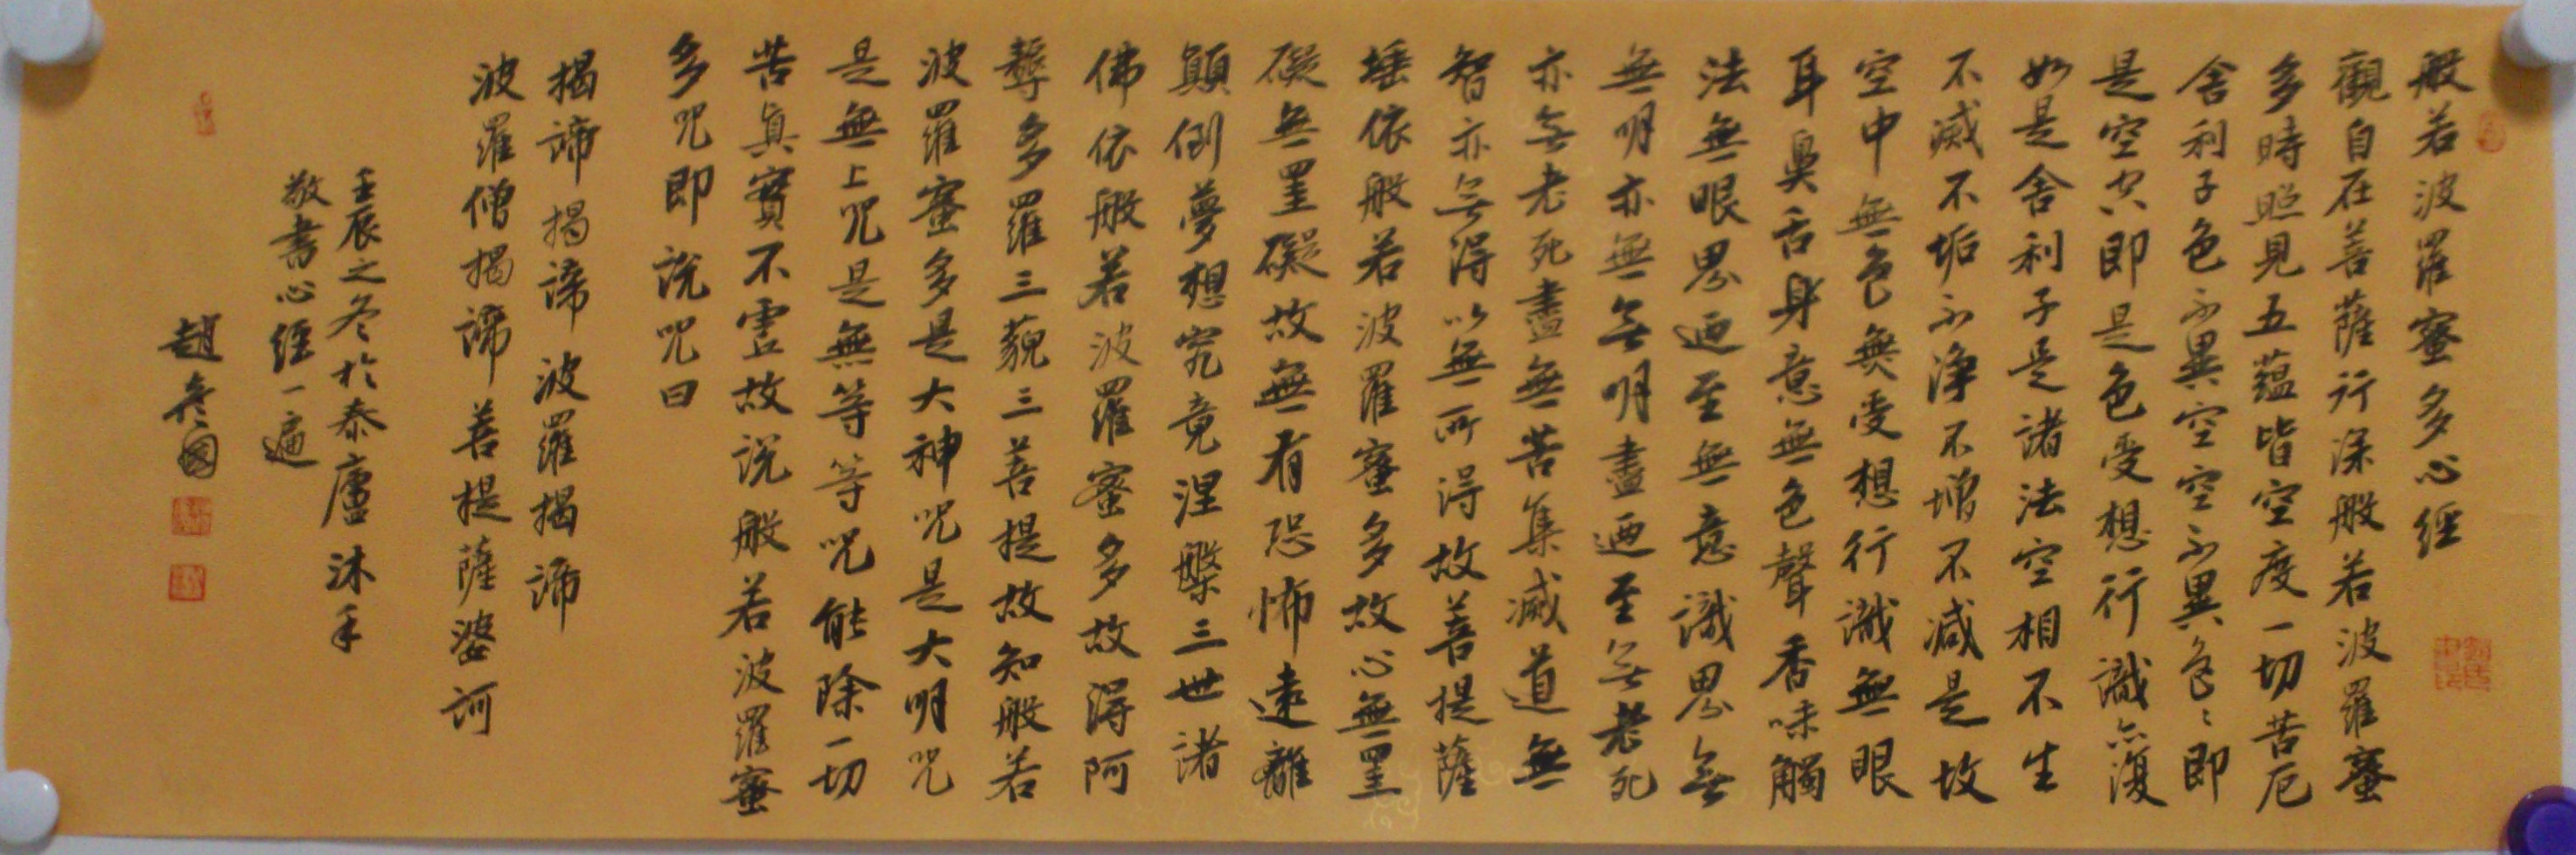 般若波羅蜜多心經
觀自在菩薩行深般若波羅蜜
多時照見五蘊皆空度一切苦厄
舍利子色不異空空不異色色即
是空空即是色受想行識亦復
如是舍利子是諸法空相不生
不滅不垢不淨不增不減是故
空中無色無受想行識無眼
耳鼻舌身意無色聲香味觸
法無眼界迺至無意識界無
無明亦無無明盡迺至無老死
亦無老死盡無苦集滅道無
智亦無得以無所得故菩提薩
埵依般若波羅蜜多故心無罣
礙無罣礙故無有恐怖遠離
顛倒夢想究竟涅槃三世諸
佛依般若波羅蜜多故得阿
耨多羅三藐三菩提故知般若
波羅蜜多是大神咒是大明咒
是無上咒是無等等咒能除一切
苦真實不虛故說般若波羅蜜
多咒即說咒曰
揭諦揭諦波羅揭諦
波羅僧揭諦菩提薩婆訶
壬辰之冬於泰廬沐手
敬書心經一遍
趙國